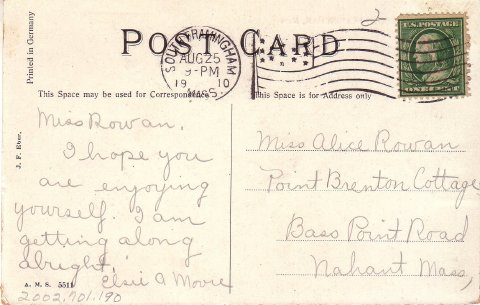 2
POST CARD
Printed in Germany
SOUTH FRAMINGHAM
AUG 25
9-PM
1910
MASS.
U.S. POSTAGE
ONE CENT
This Space may be used for Correspondence
This Space is for Address only
J. F. Eber.
Miss Rowan.
I hope you
are enjoying
yourself. I am
getting along
alright.
Elsie A Moore
Miss Alice Rowan
Point Brenton Cottage
Bass Point Road
Nahant Mass,
A. M. S. 5511
2002.701.190